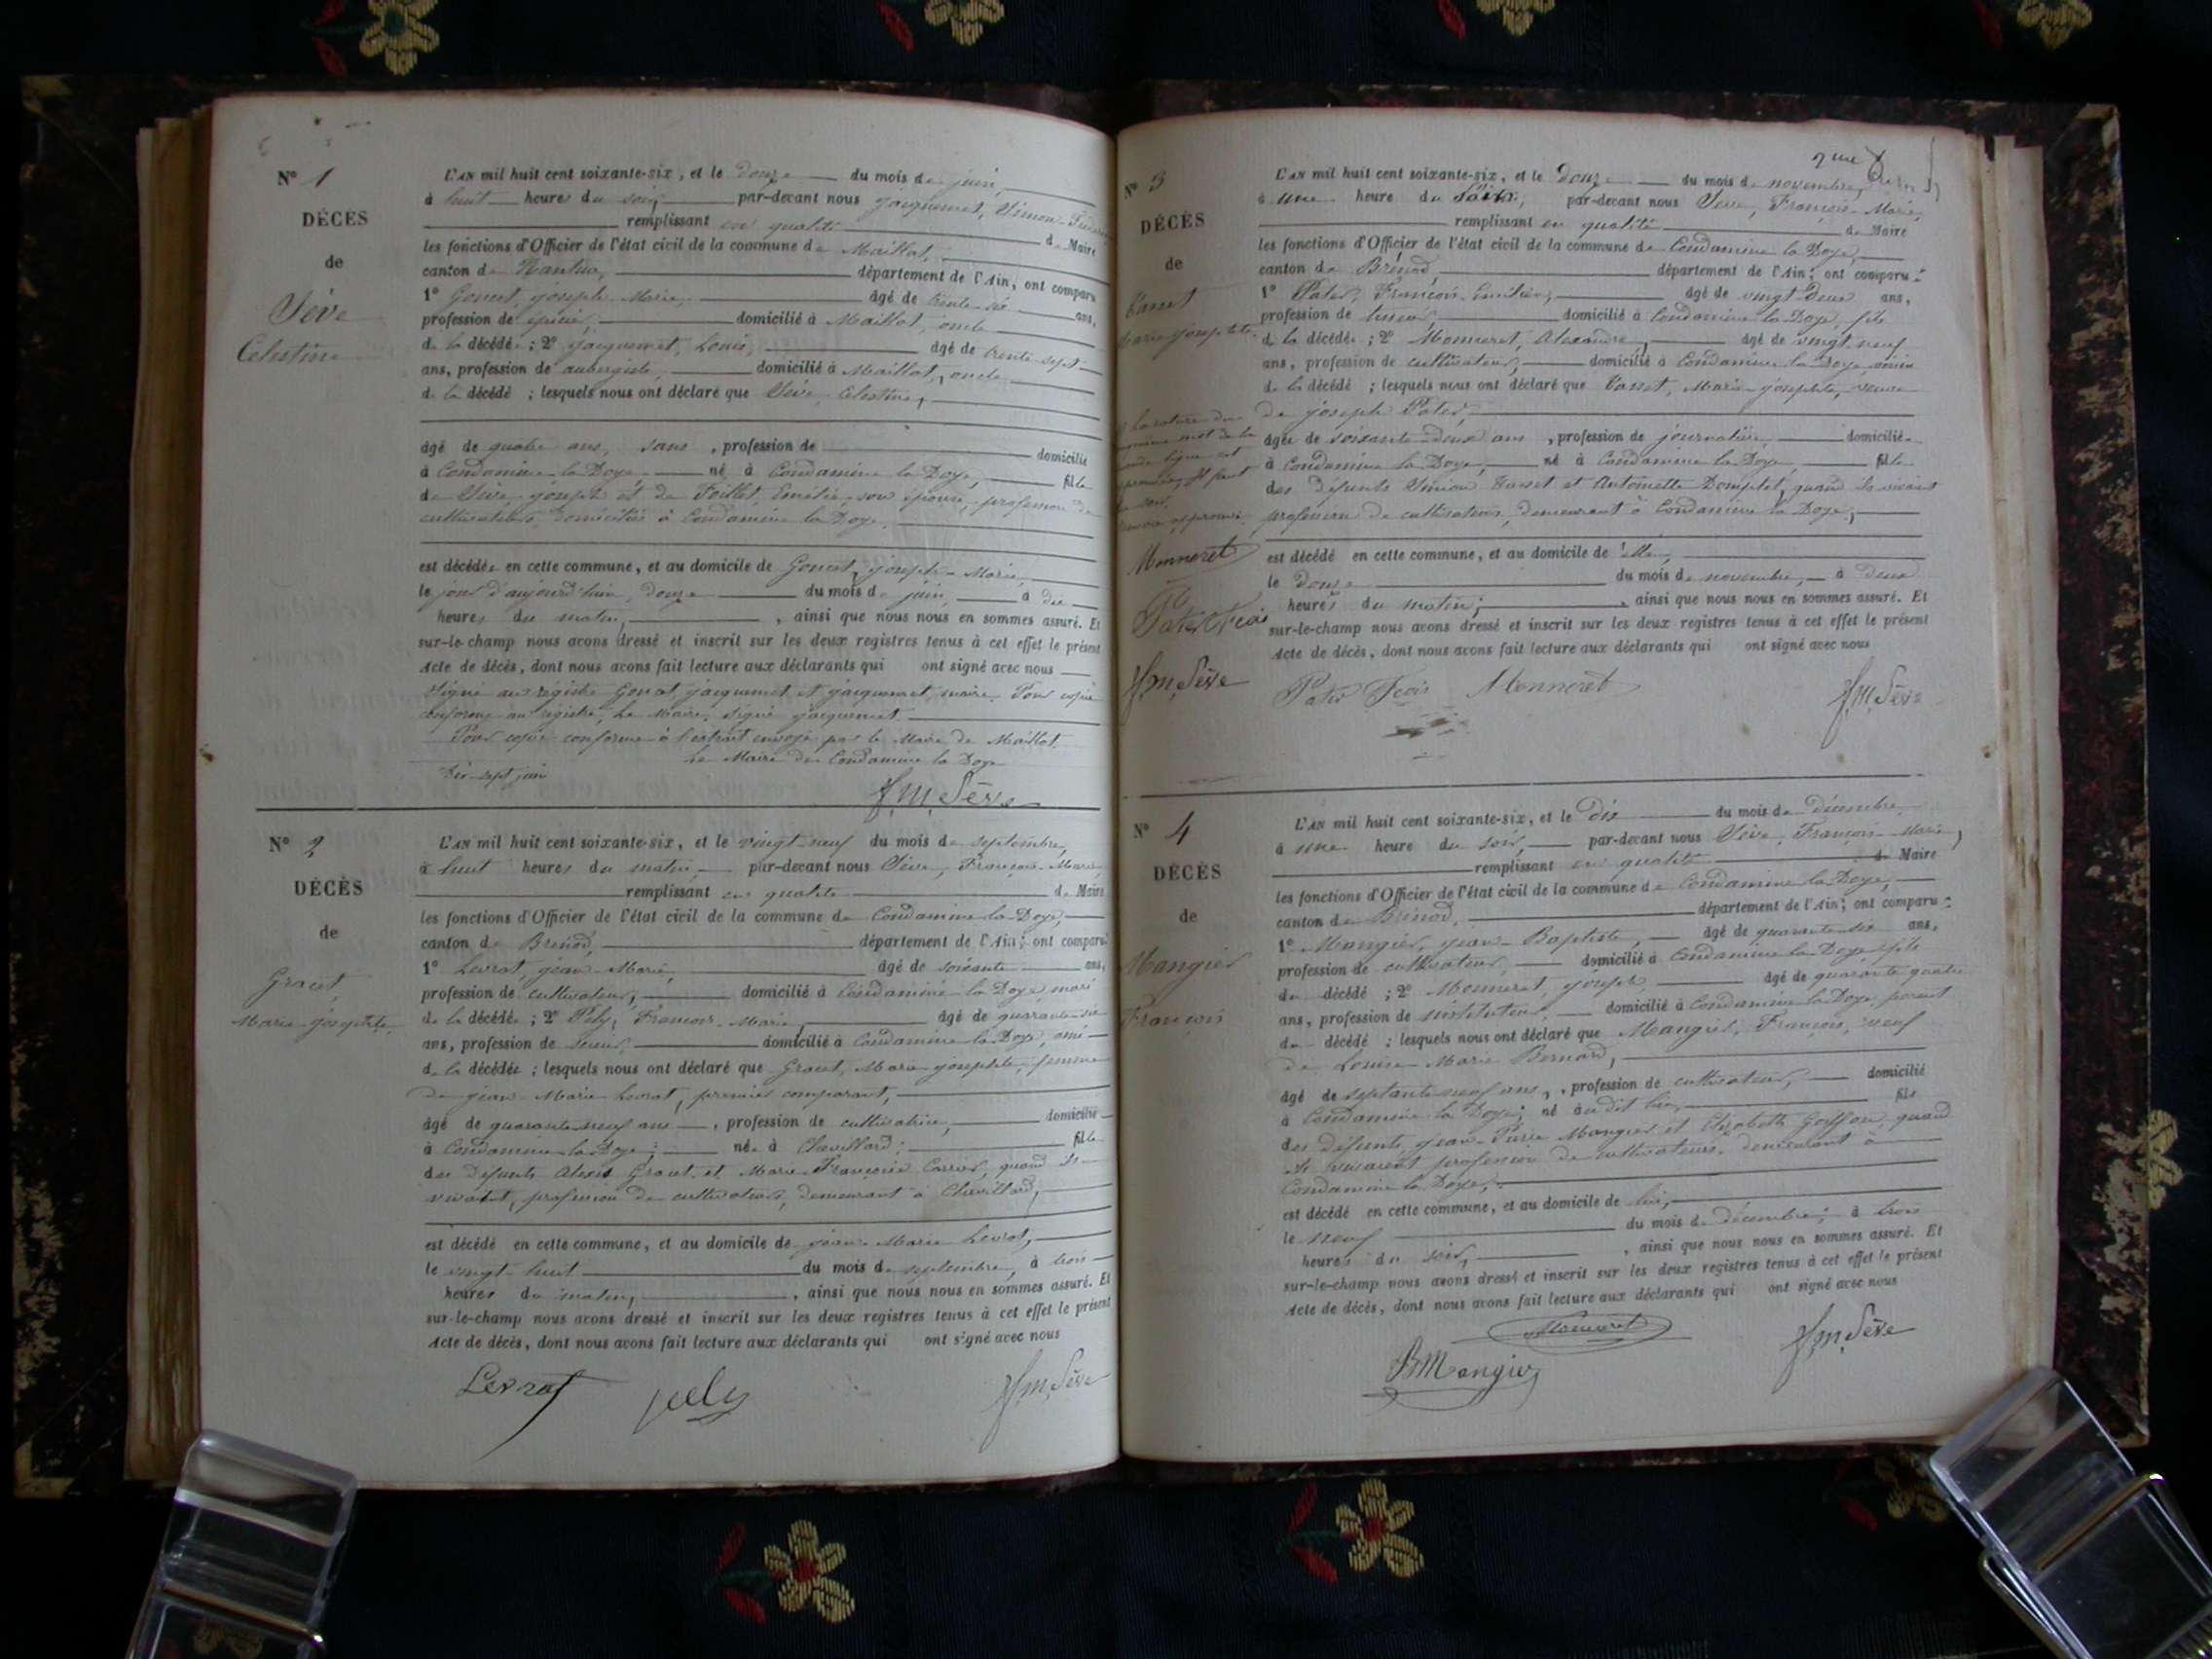 N° 1
DÉCÈS
de
Sève
Célestine
L'AN mil huit cent soixante-six, et le douze du mois de juin,
à huit heures du soir, par-devant nous Jacquemet, Simon
remplissant en qualité de Maire
les fonctions d'Officier de l'état civil de la commune de Maillat,
canton de Nantua, département de l'Ain, ont comparu
1° Goncet, Joseph Marie, âgé de trente six ans,
profession de épicier, domicilié à Maillat, oncle
de la décédée ; 2° Jacquemet, Louis, âgé de trente sept
ans, profession de aubergiste, domicilié à Maillat, oncle
de la décédé ; lesquels nous ont déclaré que Sève Célestine,
âgé de quatre ans, sans , profession de domicilié
à Condamine la Doye, né à Condamine la Doye, fille
de Sève Joseph et de son épouse, profession de
cultivateurs, domiciliés à Condamine la Doye,
est décédée en cette commune, et au domicile de Goncet, Joseph-Marie,
le jour d'aujourd'hui, douze du mois de juin, à dix
heures du matin, , ainsi que nous nous en sommes assuré. Et
sur-le-champ nous avons dressé et inscrit sur les deux registres tenus à cet effet le présent
Acte de décès, dont nous avons fait lecture aux déclarants qui ont signé avec nous
Signé au registre Goncet, Jacquemet et Jacquemet, maire. Pour copie
conforme au registre, Le Maire, Signé Jacquemet.
Pour copie conforme à l'extrait envoyé par le Maire de Maillat.
Le Maire de Condamine la Doye
Dix-sept juin
F. M. Sève
N° 2
DÉCÈS
de
Gracet,
Marie-Josephte,
L'AN mil huit cent soixante-six, et le vingt neuf du mois de septembre,
à huit heures du matin, par-devant nous Sève, François-Marie,
remplissant en qualité de Maire
les fonctions d'Officier de l'état civil de la commune de Condamine la Doye,
canton de Brénod, département de l'Ain; ont comparu:
1° Levrat, Jean-Marie, âgé de soixante ans,
profession de cultivateur, domicilié à Condamine la Doye, mari
de la décédée ; 2° Pély, François-Marie, âgé de quarante-six
ans, profession de domicilié à Condamine la Doye, ami
de la décédée ; lesquels nous ont déclaré que Gracet, Marie Josephte, femme
de Jean-Marie Levrat, premier comparant,
âgé de quarante-neuf ans , profession de cultivatrice, domicilié
à Condamine la Doye ; née à Chevillard ; fille
des défunts Alexis Gracet et Marie-Françoise Carrier, quand ils
vivaient, profession de cultivateurs, demeurant à Chevillard,
est décédé en cette commune, et au domicile de Jean-Marie Levrat,
le vingt huit du mois de septembre, à trois
heures du matin, , ainsi que nous nous en sommes assuré. Et
sur-le-champ nous avons dressé et inscrit sur les deux registres tenus à cet effet le présent
Acte de décès, dont nous avons fait lecture aux déclarants qui ont signé avec nous
Levrat pely F. M. Sève
N° 3
DÉCÈS
de
Marie Josephte
L'AN mil huit cent soixante-six, et le Douze du mois de novembre,
à une heure du par-devant nous Sève, François-Marie,
remplissant en qualité de Maire
les fonctions d'Officier de l'état civil de la commune de Condamine la Doye,
canton de Brénod, département de l'Ain; ont comparu :
1° Pater, François Emilien, âgé de vingt-deux ans,
profession de domicilié à Condamine la Doye, fils
de la décédée ; 2° Monneret, Alexandre, âgé de vingt-neuf
ans, profession de cultivateur, domicilié à Condamine la Doye, voisin
de la décédé ; lesquels nous ont déclaré que Marie-Josephte, veuve
de Joseph Pater,
âgée de soixante-deux ans , profession de journalière, domiciliée
à Condamine la Doye, né à Condamine la Doye, fille
des défunts et Antoinette quand ils vivaient
profession de cultivateurs, demeurant à Condamine la Doye,
est décédé en cette commune, et au domicile de elle,
le douze du mois de novembre, à deux
heures du matin ; , ainsi que nous nous en sommes assuré. Et
sur-le-champ nous avons dressé et inscrit sur les deux registres tenus à cet effet le présent
Acte de décès, dont nous avons fait lecture aux déclarants qui ont signé avec nous
Monneret
Pater Fçois
F. M. Sève
Pater Fçois Monneret F. M. Sève
N° 4
DÉCÈS
de
Mangier
François
L'AN mil huit cent soixante-six, et le dix du mois de décembre
à une heure du soir, par-devant nous Sève, François-Marie,
remplissant en qualité de Maire
les fonctions d'Officier de l'état civil de la commune de Condamine la Doye,
canton de Brénod, département de l'Ain; ont comparu :
1° Mangier, Jean-Baptiste, âgé de quarante-six ans,
profession de cultivateur, domicilié à Condamine la Doye, fils
du décédé ; 2° Monneret, Joseph, âgé de quarante quatre
ans, profession de instituteur, domicilié à Condamine la Doye, parent
du décédé ; lesquels nous ont déclaré que Mangier, François, veuf
de Louise Marie Bernard,
âgé de septante-neuf ans, , profession de cultivateur, domicilié
à Condamine la Doye ; né audit lieu, fils
des défunts Jean-Pierre Mangier et Elisabeth Goiffon, quand
ils vivaient profession de cultivateurs, demeurant à
Condamine la Doye,
est décédé en cette commune, et au domicile de lui,
le neuf du mois de décembre, à trois
heures du soir, , ainsi que nous nous en sommes assuré. Et
sur-le-champ nous avons dressé et inscrit sur les deux registres tenus à cet effet le présent
Acte de décès, dont nous avons fait lecture aux déclarants qui ont signé avec nous
Monneret F. M. Sève
JB Mangier